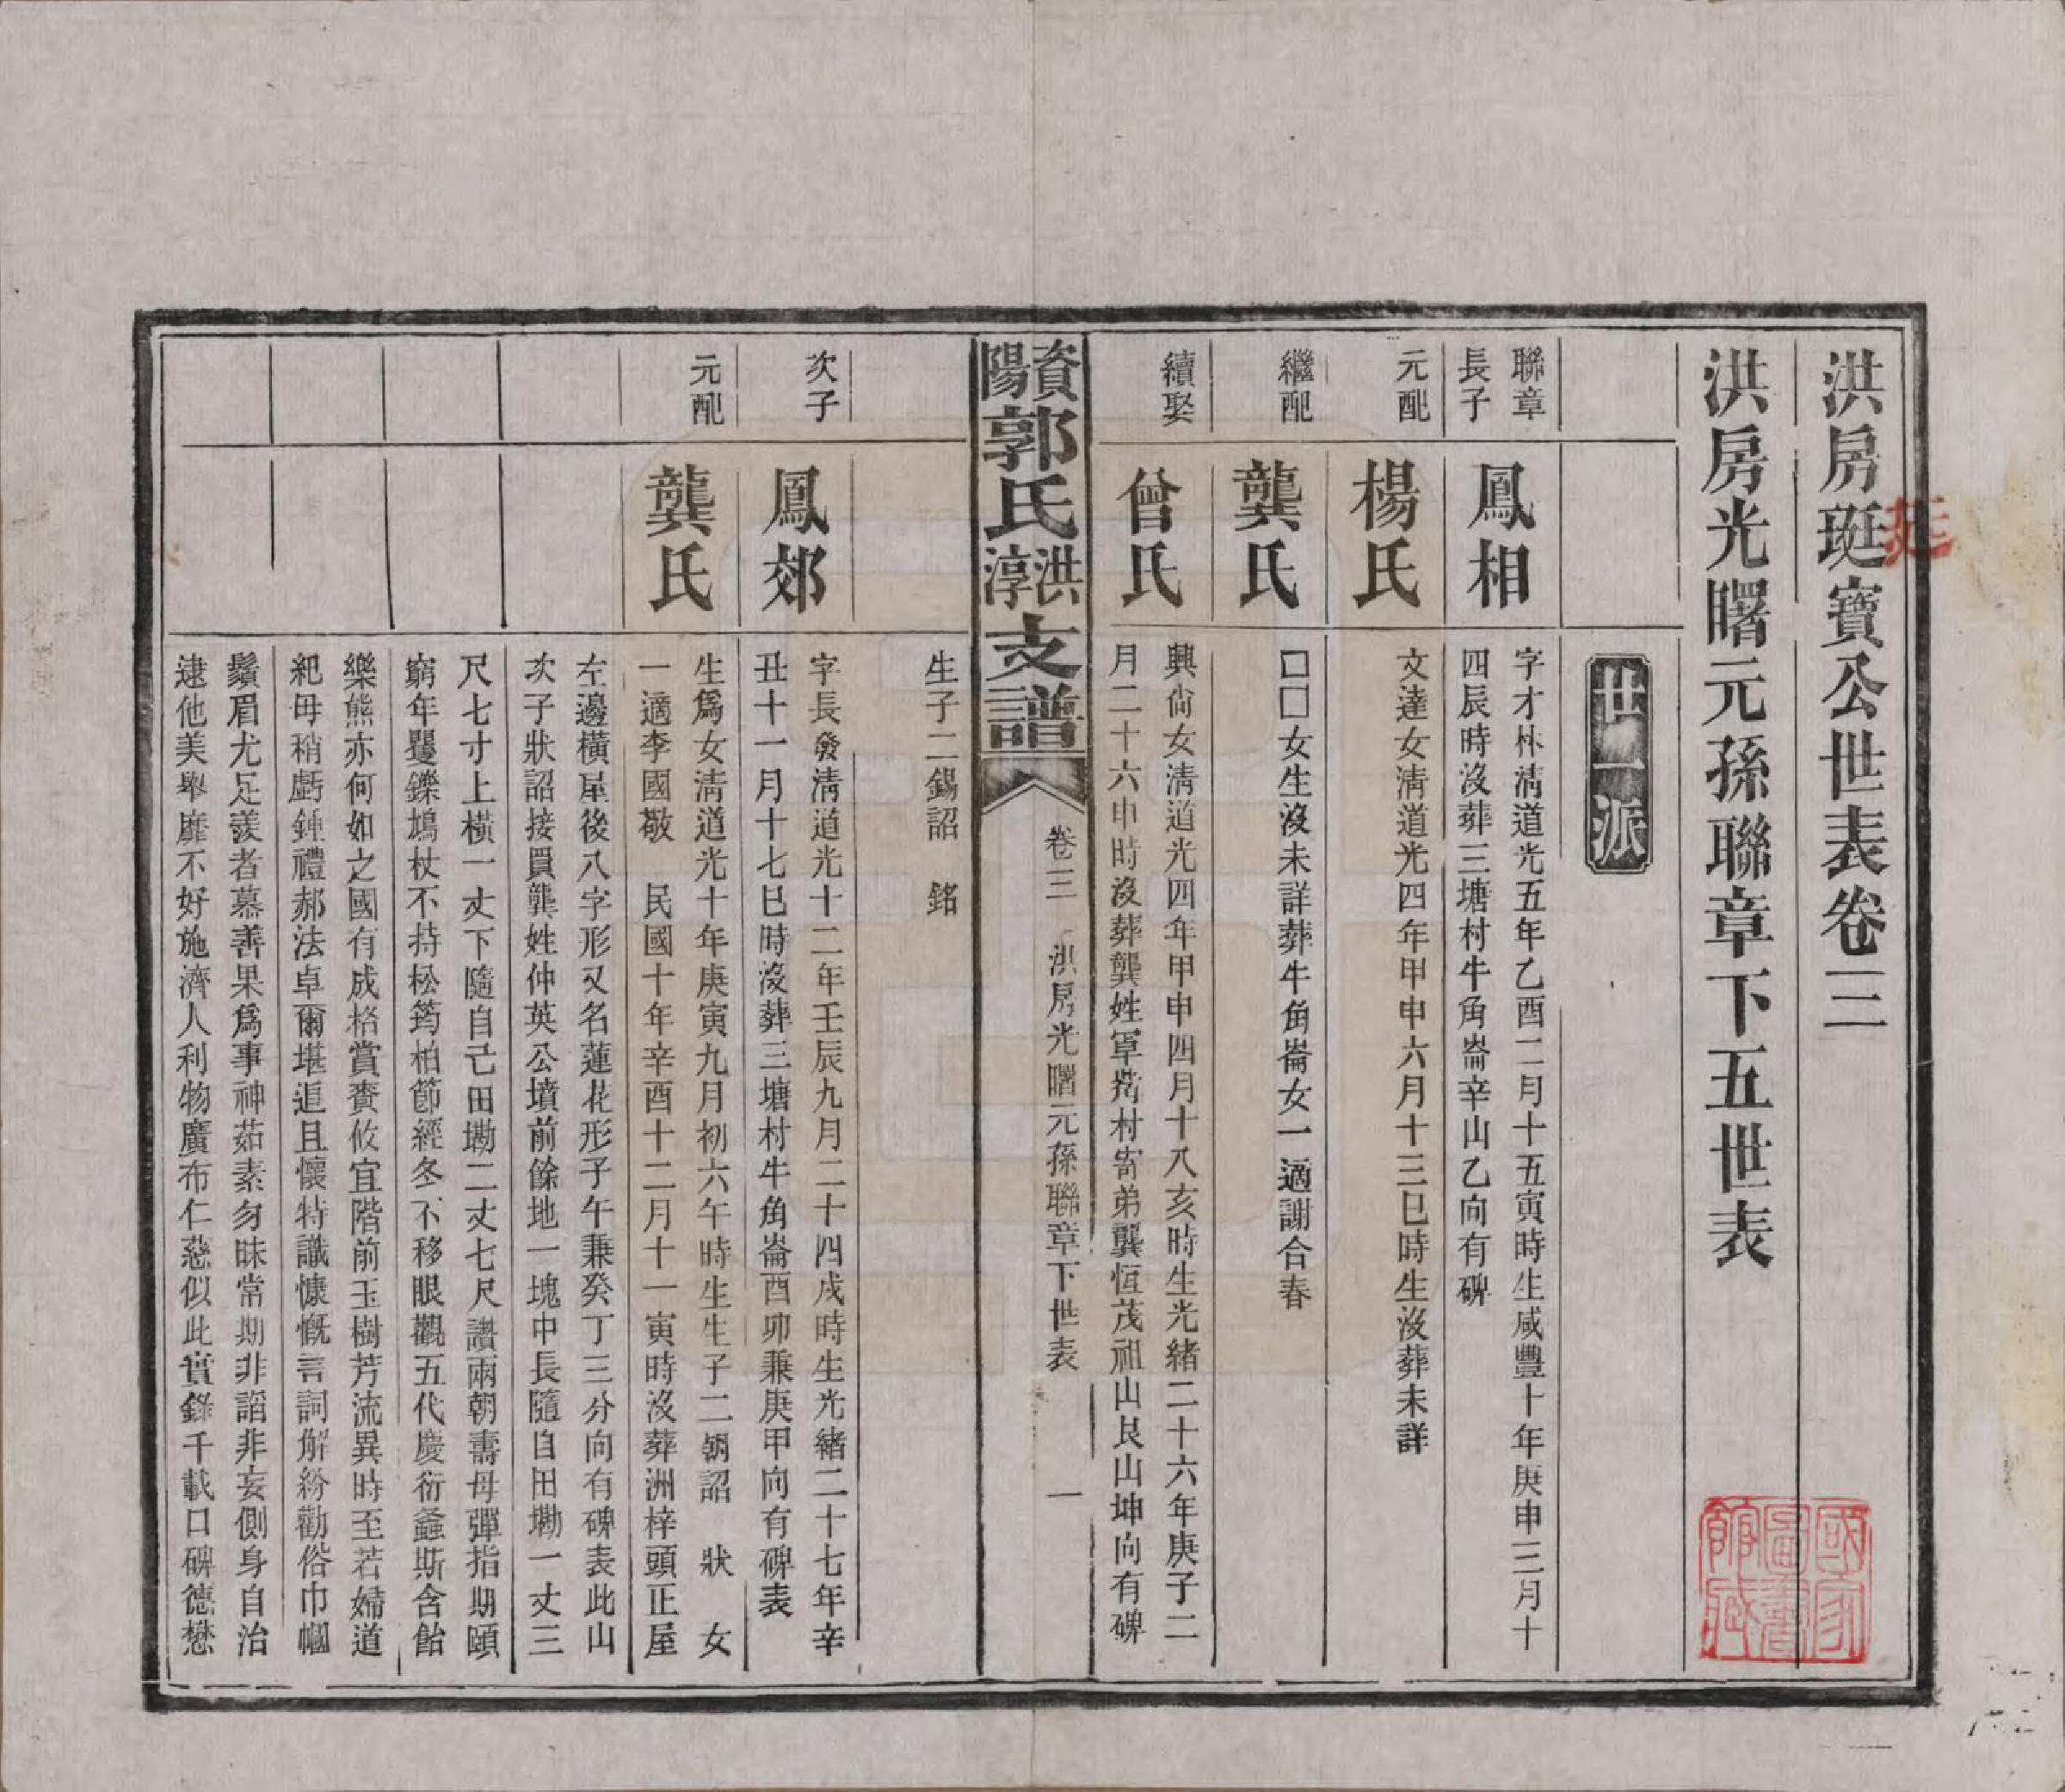 洪房珽寶公世表卷三
珽
洪房光曙元孫聯章下五世表
世一派
聯章
長子
鳳相
字才林清道光五年乙酉二月十五寅時生咸豐十年庚申三月十
四辰時沒葬三塘村牛角崙辛山乙向有碑
元配
楊氏
文達女清道光四年甲申六月十三巳時生沒葬未詳
繼配
龔氏
□□女生沒未詳葬牛角崙女一適謝合春
續娶
曾氏
興尙女清道光四年甲申四月十八亥時生光緒二十六年庚子二
月二十六申時沒葬龔姓寧村寄弟龔恆茂祖山艮山坤向有碑
資陽郭氏洪淳支譜
卷三 洪房光曙元孫聯章下世表 一
生子二錫詔 銘
次子
鳳郊
字長發清道光十二年壬辰九月二十四戌時生光緒二十七年辛
丑十一月十七巳時沒葬三塘村牛角崙酉卯兼庚甲向有碑表
元配
龔氏
生爲女清道光十年庚寅九月初六午時生生子二朝詔 狀 女
一適李國敬 民國十年辛酉十二月十一寅時沒葬洲梓頭正屋
左邊橫屋後八字形又名蓮花形子午兼癸丁三分向有碑表此山
次子狀詔接買龔姓仲英公墳前餘地一塊中長隨自田墈一丈三
尺七寸上橫一丈下隨自己田墈二丈七尺讚兩朝壽母彈指期頤
窮年矍鑠鳩杖不持松筠柏節經冬不移眼觀五代慶衍螽斯含飴
樂熊亦何如之國有成格賞賚攸宜階前玉樹芳流異時至若婦道
紀毋稍虧鍾禮郝法卓爾堪追且懷特識慷慨言詞解紛勸俗巾幗
鬚眉尤足羨者慕善果爲事神茹素勿昧常期非謟非妄側身自治
逮他美舉靡不好施濟人利物廣布仁慈似此實錄千載口碑德懋
國家圖書館藏